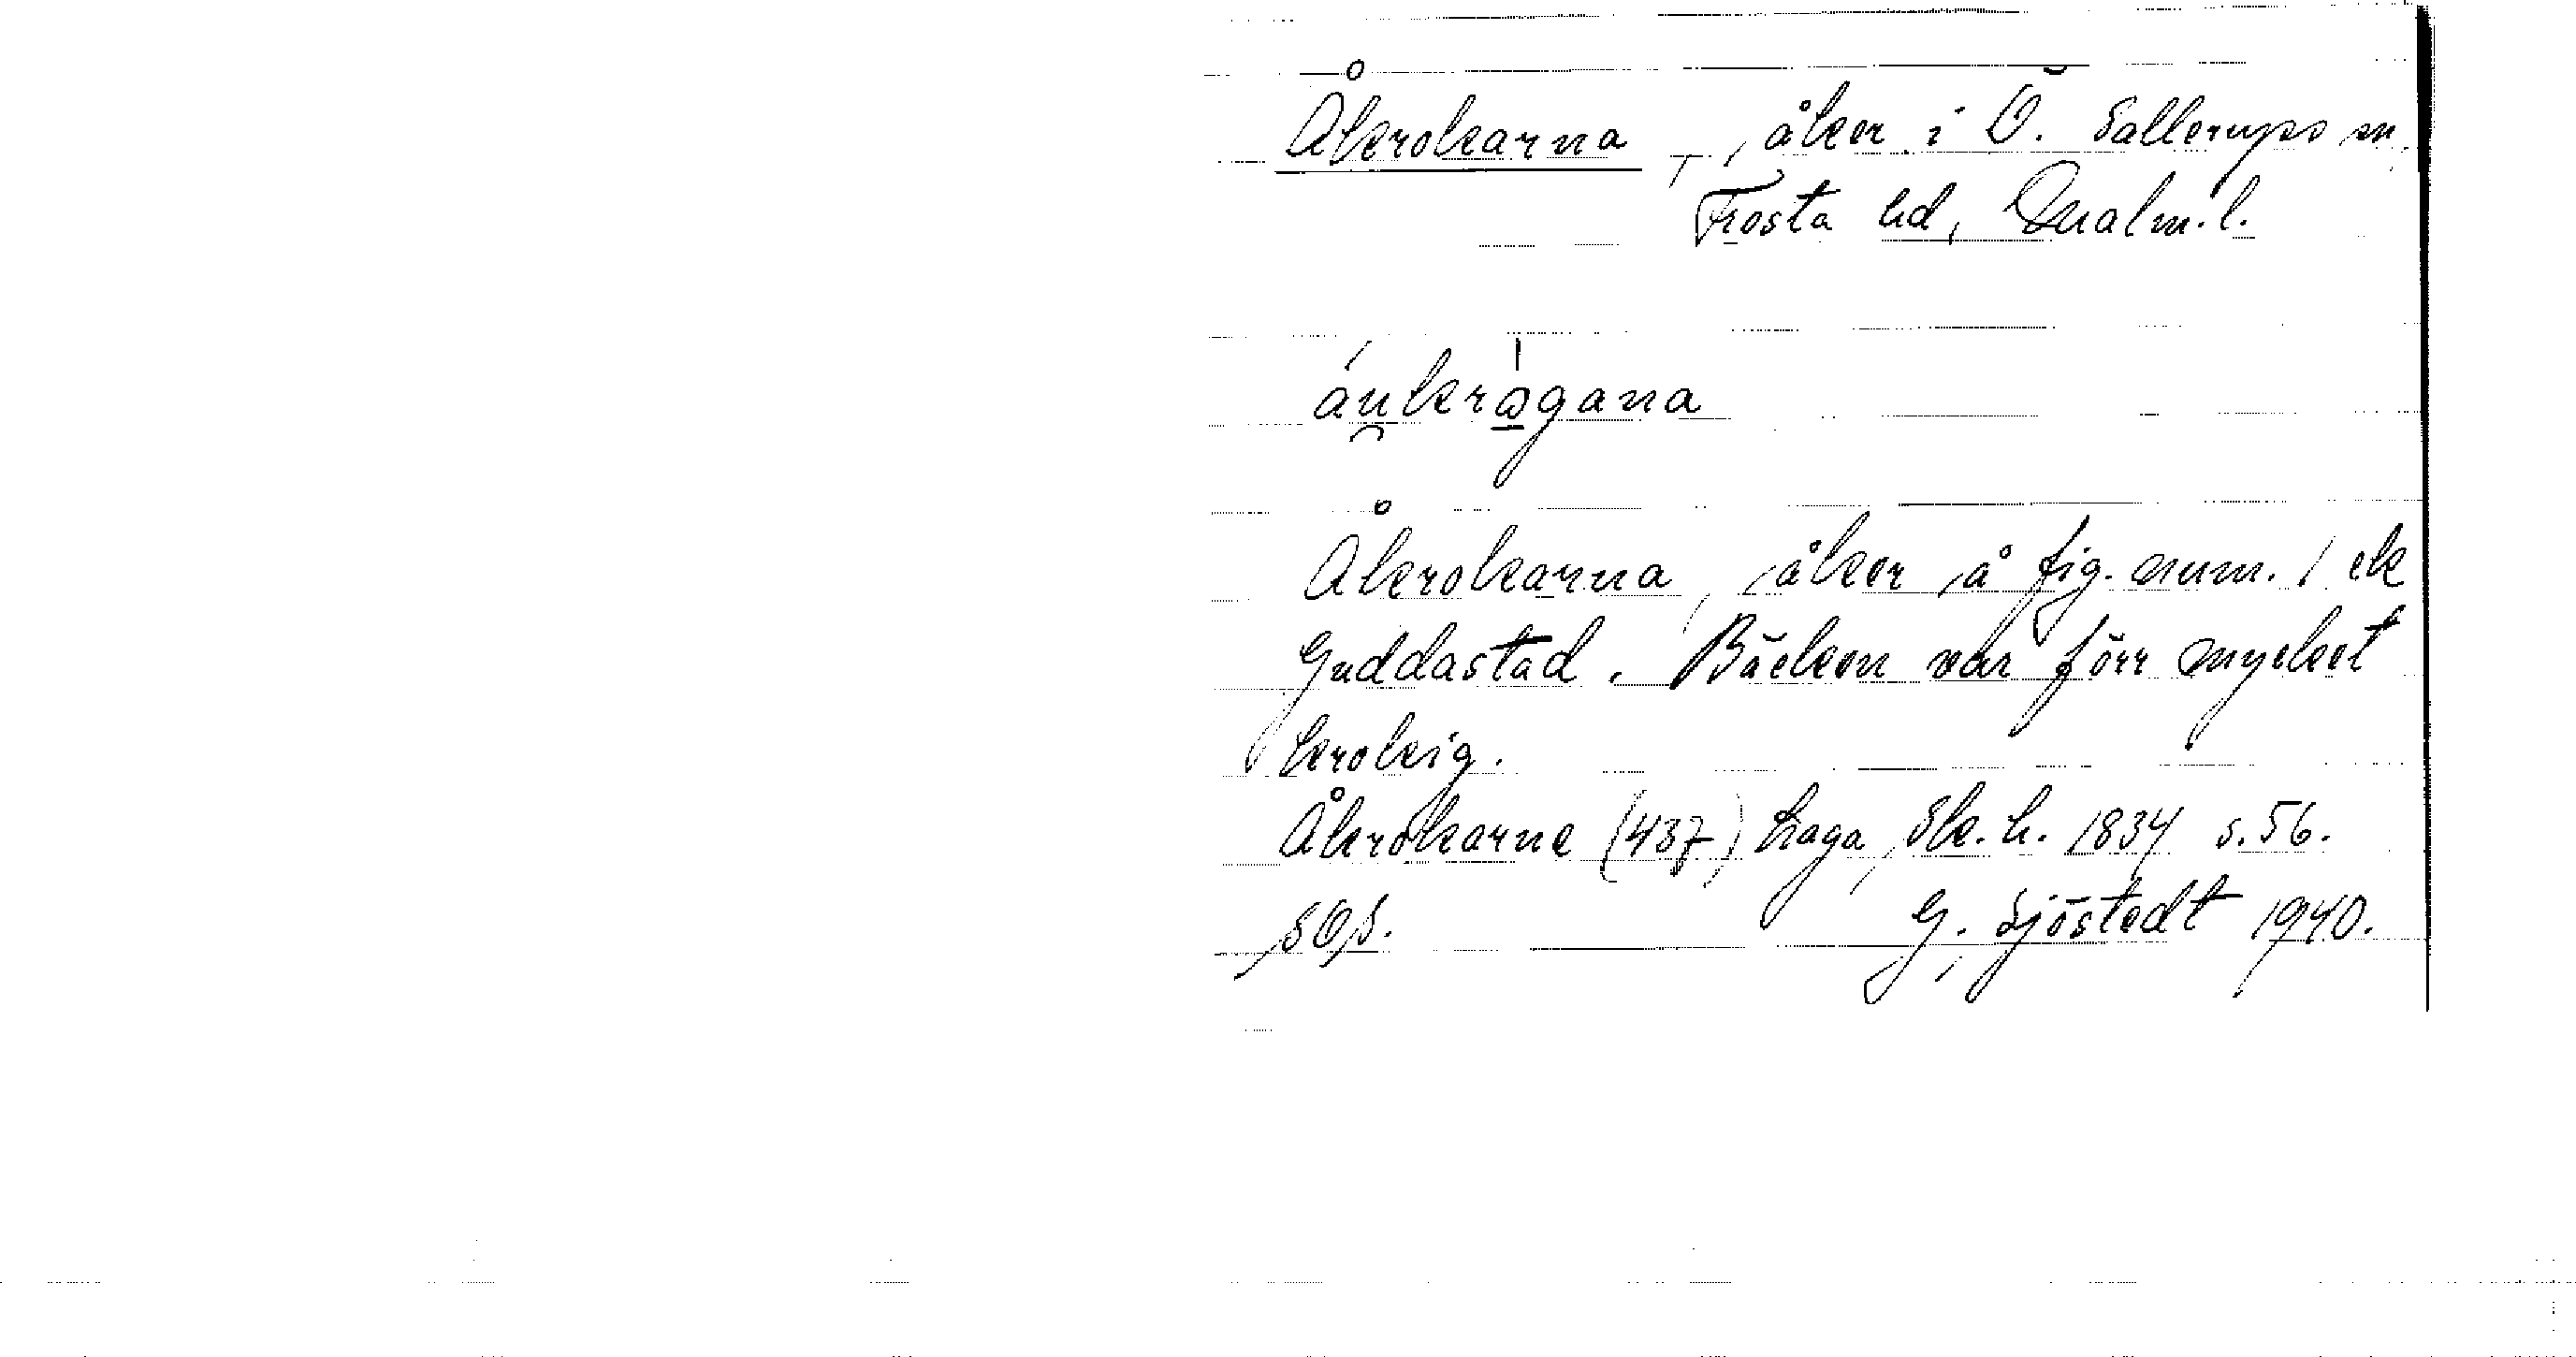 Åkrokarna, åker i Ö. Sallerups sn
Frosta hd, Malm. l.
áu̯krò̱gana
Åkrokarna, åker å fig. num. 1 ek
Guddastad. Bäcken var förr mycket
krokig.
Åkrökarne (437) haga, Sk. h. 1834 s. 56.
SOS. G. Sjöstedt 1940.